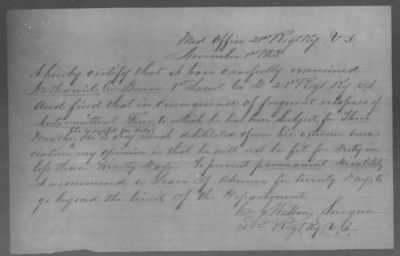 Med Office 21st Regt Ky. V. I.
November 1st 1863
I hereby certify that I have carefully examined
Nathaniel C. 1st Lieut Co 21st Regt Ky V.I.
And find that in consequence of frequent relapses of
Intermittent Fever to which he has been Subject for Three
Months, he is very much debilitated from his extreme
my opinion is that he will not be fit for duty in
less than Twenty Days. To prevent permanent disability
I recommend a Leave of Absence for twenty days to
go beyond the limits of the Department
Surgeon
21st Regt Ky. V. I.